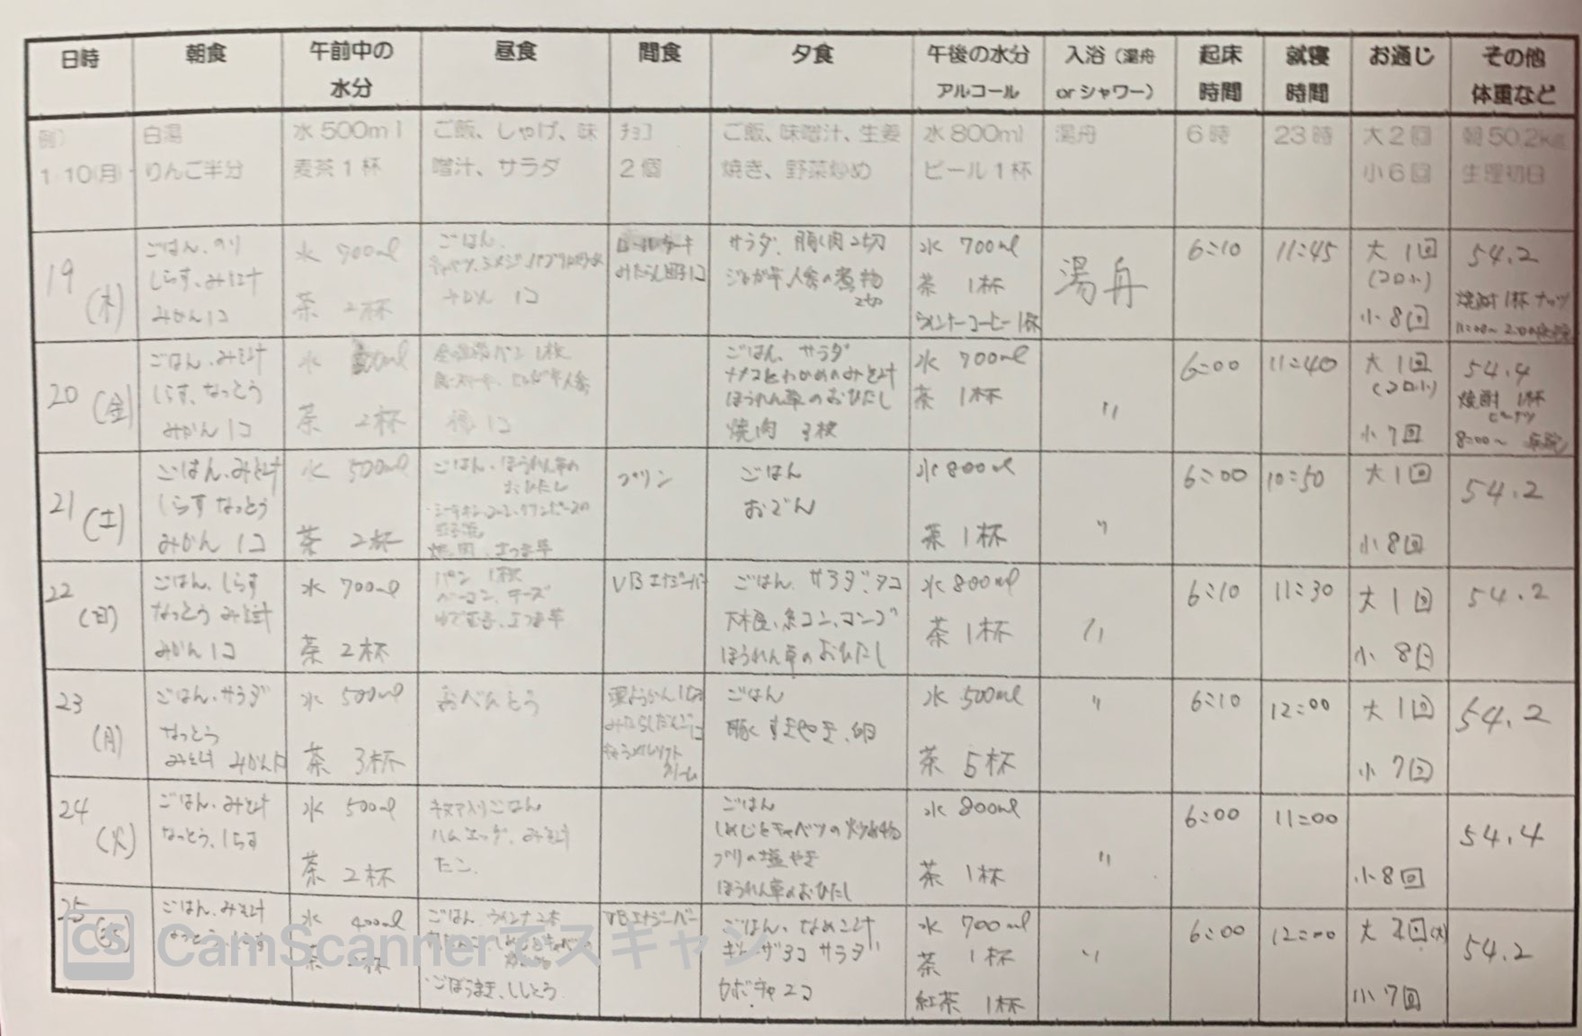 日時 朝食 午前中の水分 昼食 間食 夕食 午後の水分 アルコール 入浴（湯舟orシャワー） 起床時間 就寝時間 お通じ その他 体重など
例）
1 10(月)
白湯
りんご半分
水500ml
麦茶1杯
ご飯、しゃけ、味
噌汁、サラダ
チョコ
2個
ご飯、味噌汁、生姜
焼き、野菜炒め
水800ml
ビール1杯
湯舟
6時
23時
大2回
小6回
朝50.2kg
生理初日
19
(木)
ごはん、のり
しらす、みそ汁
みかん1コ
水 700ml
茶 2杯
ごはん、
みかん 1コ
ロールケーキ
みたらし団子1コ
サラダ、豚肉2切
じゃが芋、人参の煮物
2切
水 700ml
茶 1杯
ウィンナーコーヒー1杯
湯舟
6:10
11:45
大 1回
(コロ小)
小8回
54.2
焼酎1杯 ナッツ
20
(金)
ごはん、みそ汁
しらす、なっとう
みかん1コ
水
茶 2杯
1枚
1コ
ごはん、サラダ
ナメコとわかめのみそ汁
ほうれん草のおひたし
焼肉 3枚
水 700ml
茶 1杯
〃
6:00
11:40
大 1回
(コロ小)
小7回
54.4
焼酎 1杯
ピーナツ
8:00〜
21
(土)
ごはん、みそ汁
しらす なっとう
みかん 1コ
水 500ml
茶 2杯
ごはん、ほうれん草の
おひたし
焼肉、さつま芋
プリン
ごはん
おでん
水800ml
茶 1杯
〃
6:00
10:50
大1回
小8回
54.2
22
(日)
ごはん、しらす
なっとう みそ汁
みかん1コ
水 700ml
茶 2杯
パン 1枚
ベーコン、チーズ
ゆで玉子、さつま芋
VBエナジーバー
ごはん、サラダ、タコ
大根、糸コン、
ほうれん草のおひたし
水800ml
茶 1杯
〃
6:10
11:30
大 1回
小 8回
54.2
23
(月)
ごはん、サラダ
なっとう
みそ汁 みかん
水 500ml
茶 3杯
おべんとう
みたらしだんご1コ
キャラメルソフト
クリーム
ごはん
豚しゃぶ
水 500ml
茶 5杯
〃
6:10
12:00
大1回
小 7回
54.2
24
(火)
ごはん、みそ汁
なっとう、しらす
水 500ml
茶 2杯
入りごはん
ハムエッグ、みそ汁
たこ
ごはん
しめじとキャベツの炒め物
ブリの塩やき
ほうれん草のおひたし
水 800ml
茶 1杯
〃
6:00
11:00
小8回
54.4
25
ごはん、みそ汁
なっとう、しらす
水 400ml
ごはん ウィンナ2本
ごぼうまき、ししとう
VBエナジーバー
ごはん、なめこ汁
ギョーザ2コ サラダ
カボチャ2コ
水 700ml
茶 1杯
紅茶 1杯
〃
6:00
12:00
大 2回
小7回
54.2
CS CamScannerでスキャン